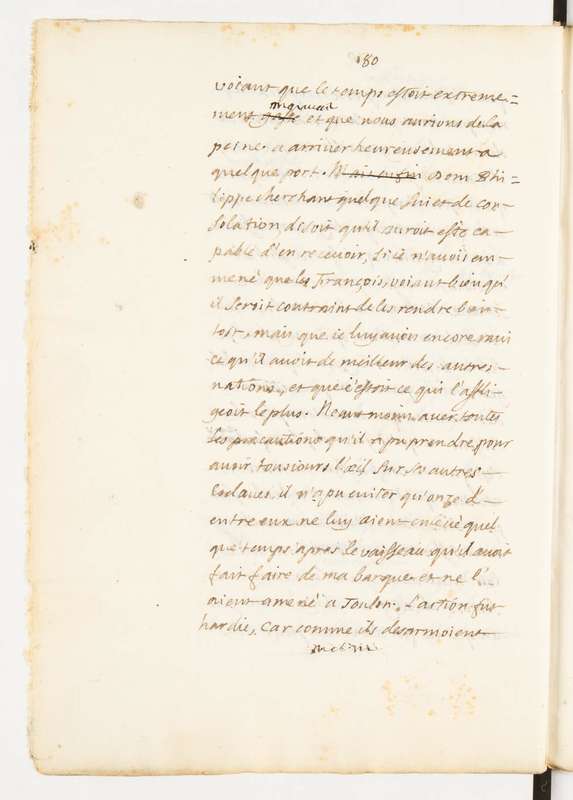 80
voiant que le temps estoit extreme=
mauvais
ment gasté et que nous aurions de la
peine a arriver heureusement a
quelque port. Dom Phi=
lippe cherchant quelque suiet de con-
solation, disoit qu'il auroit esté ca-
pable d'en recevoir, si ie n'avois em-
mené que les François, voiant bien qu'
il seroit contraint de les rendre bien-
tost, mais que ie luy avois encore ravi
ce qu'il avoit de meilleur des autres
nations, et que c'estoit ce qui l'affli-
geoit le plus. Neantmoins avec toutes
les precautions qu'il a pu prendre, pour
avoir tousiours l'œil sur ses autres
Esclaves, il n'a pu eviter qu'onze d'
entre eux ne luy aient enlevé quel
que temps apres le vaisseau qu'il avoit
fait faire de ma barque et ne l'
aient amené a Toulon. L'action fut
hardie, Car comme ils desarmoient